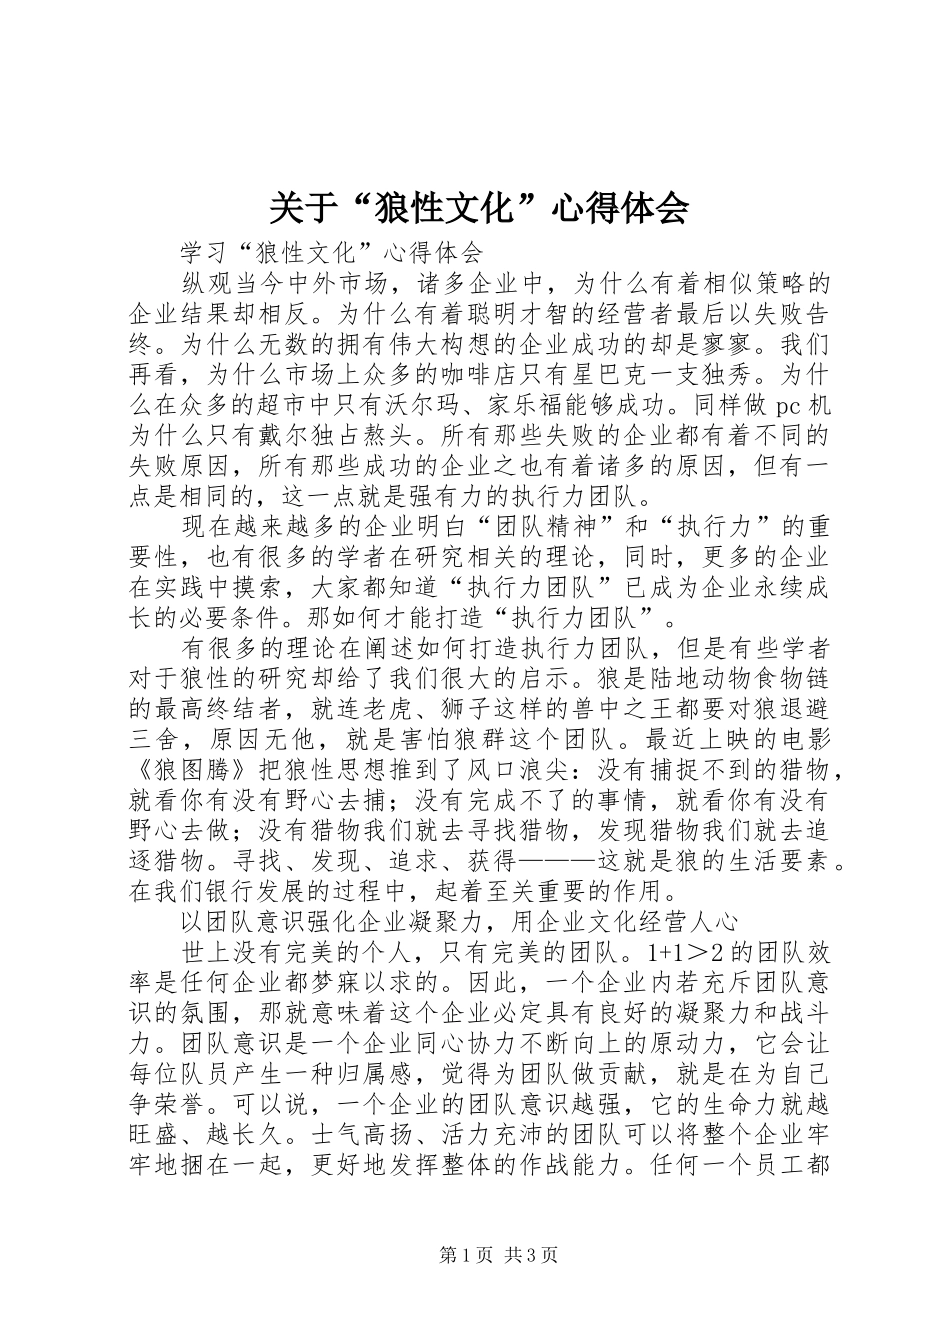 关于“狼性文化”心得体会
学习“狼性文化”心得体会
纵观当今中外市场，诸多企业中，为什么有着相似策略的
企业结果却相反。为什么有着聪明才智的经营者最后以失败告
终。为什么无数的拥有伟大构想的企业成功的却是寥寥。我们
再看，为什么市场上众多的咖啡店只有星巴克一支独秀。为什
么在众多的超市中只有沃尔玛、家乐福能够成功。同样做 pc 机
为什么只有戴尔独占熬头。所有那些失败的企业都有着不同的
失败原因，所有那些成功的企业之也有着诸多的原因，但有一
点是相同的，这一点就是强有力的执行力团队。
现在越来越多的企业明白“团队精神”和“执行力”的重
要性，也有很多的学者在研究相关的理论，同时，更多的企业
在实践中摸索，大家都知道“执行力团队”已成为企业永续成
长的必要条件。那如何才能打造“执行力团队”。
有很多的理论在阐述如何打造执行力团队，但是有些学者
对于狼性的研究却给了我们很大的启示。狼是陆地动物食物链
的最高终结者，就连老虎、狮子这样的兽中之王都要对狼退避
三舍，原因无他，就是害怕狼群这个团队。最近上映的电影
《狼图腾》把狼性思想推到了风口浪尖：没有捕捉不到的猎物，
就看你有没有野心去捕；没有完成不了的事情，就看你有没有
野心去做；没有猎物我们就去寻找猎物，发现猎物我们就去追
逐猎物。寻找、发现、追求、获得———这就是狼的生活要素。
在我们银行发展的过程中，起着至关重要的作用。
以团队意识强化企业凝聚力，用企业文化经营人心
世上没有完美的个人，只有完美的团队。1+1＞2 的团队效
率是任何企业都梦寐以求的。因此，一个企业内若充斥团队意
识的氛围，那就意味着这个企业必定具有良好的凝聚力和战斗
力。团队意识是一个企业同心协力不断向上的原动力，它会让
每位队员产生一种归属感，觉得为团队做贡献，就是在为自己
争荣誉。可以说，一个企业的团队意识越强，它的生命力就越
旺盛、越长久。士气高扬、活力充沛的团队可以将整个企业牢
牢地捆在一起，更好地发挥整体的作战能力。任何一个员工都
第 1 页 共 3 页